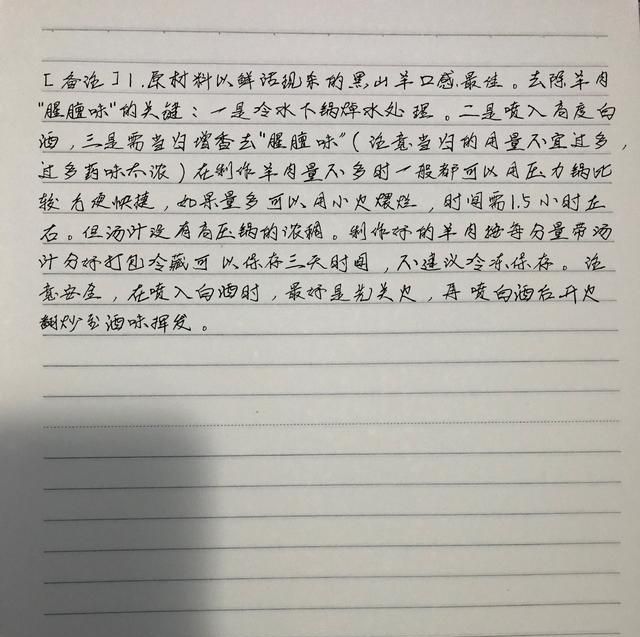 [备注]1.原材料以鲜活现杀的黑山羊口感最佳。去除羊肉
"腥膻味"的关键：一是冷水下锅焯水处理。二是喷入高度白
酒，三是需当归增香去"腥膻味"(注意当归的用量不宜过多，
过多药味太浓)在制作羊肉量不多时一般都可以用压力锅比
较方便快捷，如果量多可以用小火煨烂，时间需1.5小时左
右。但汤汁没有高压锅的浓稠。制作好的羊肉按每分量带汤
汁分好打包冷藏可以保存三天时间，不建议冷冻保存。注
意安全，在喷入白酒时，最好是先关火，再喷白酒后开火
翻炒至酒味挥发。